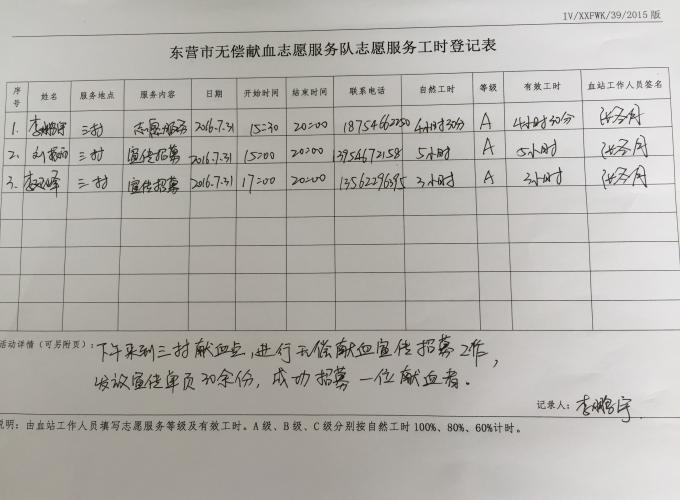 IV/XXFWK/39/2015 版
东营市无偿献血志愿服务队志愿服务工时登记表
序号 姓名 服务地点 服务内容 日期 开始时间 结束时间 联系电话 自然工时 等级 有效工时 血站工作人员签名
1. 李鹏宇 三村 志愿服务 2016.7.31 15:30 20:00 18754662250 4小时30分 A 4小时30分
2. 三村 宣传招募 2016.7.31 15:00 20:00 13954672158 5小时 A 5小时
3. 三村 宣传招募 2016.7.31 17:00 20:00 13562296395 3小时 A 3小时
活动详情（可另附页）：下午来到三村献血点，进行无偿献血宣传招募工作，
发放宣传单页30余份，成功招募一位献血者。
记录人：李鹏宇
说明：由血站工作人员填写志愿服务等级及有效工时。A级、B级、C级分别按自然工时100%、80%、60%计时。